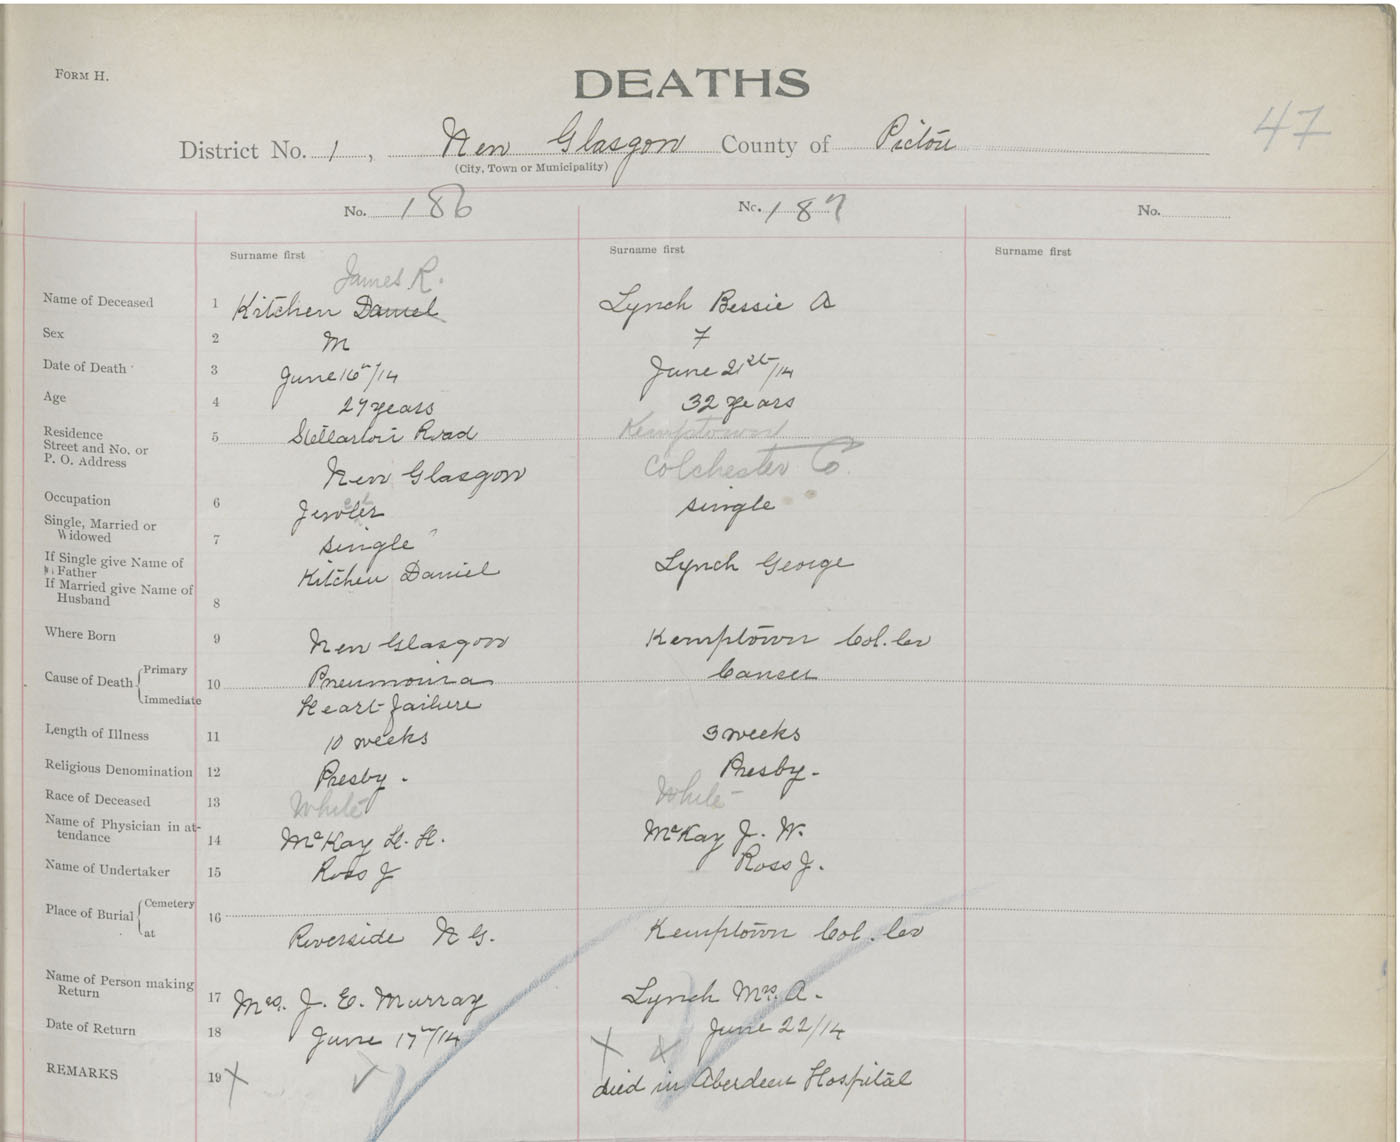 FORM H.
DEATHS
47
District No. 1, New Glasgow County of Pictou
(City, Town or Municipality)
No. 186 No. 187 No.
Surname first Surname first Surname first
James R.
Name of Deceased 1 Kitchen Daniel Lynch Bessie A
Sex 2 M F
Date of Death 3 June 16th/14 June 21st/14
Age 4 27 years 32 years
Residence Street and No. or P. O. Address 5 Stellarton Road Kemptown
New Glasgow Colchester Co.
Occupation 6 Jewler single
Single, Married or Widowed 7 single
If Single give Name of Father Kitchen Daniel Lynch George
If Married give Name of Husband 8
Where Born 9 New Glasgow Kemptown Col. Co
Cause of Death Primary 10 Pneumonia Cancer
Immediate Heart failure
Length of Illness 11 10 weeks 3 weeks
Religious Denomination 12 Presby. Presby.
Race of Deceased 13 White White
Name of Physician in attendance 14 McKay H. H. McKay J. W.
Name of Undertaker 15 Ross J Ross J.
Place of Burial Cemetery 16
at Riverside N G. Kemptown Col. Co
Name of Person making Return 17 Mrs. J. E. Murray Lynch Mrs. A.
Date of Return 18 June 17th/14 June 22/14
REMARKS 19 X ✓ X X died in Aberdeen Hospital